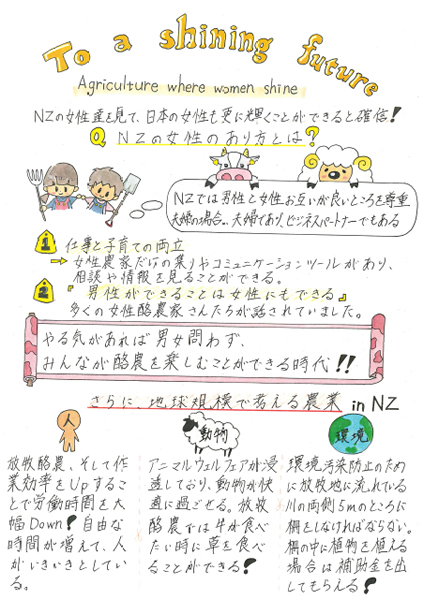 To a shining future
Agriculture where women shine
NZの女性達を見て、日本の女性も更に輝くことができると確信!
Q NZの女性のあり方とは?
NZでは男性と女性お互いが良いところを尊重
夫婦の場合、夫婦であり、ビジネスパートナーでもある
1 仕事と子育ての両立
→女性農家だけの集りやコミュニケーションツールがあり、
相談や情報を見ることができる。
2 『男性ができることは女性にもできる』
多くの女性酪農家さんたちが話されていました。
やる気があれば男女問わず、
みんなが酪農を楽しむことができる時代!!
さらに、地球規模で考える農業 in NZ
人
放牧酪農、そして作
業効率をUpするこ
とで労働時間を大
幅Down!自由な
時間が増えて、人
がいきいきとしてい
る。
動物
アニマルウェルフェアが浸
透しており、動物が快
適に過ごせる。放牧
酪農では牛が食べ
たい時に草を食べ
ることができる!
環境
環境汚染防止のため
に放牧地に流れている
川の両側5mのところに
柵をしなければならない。
柵の中に植物を植える
場合は補助金を出
してもらえる!